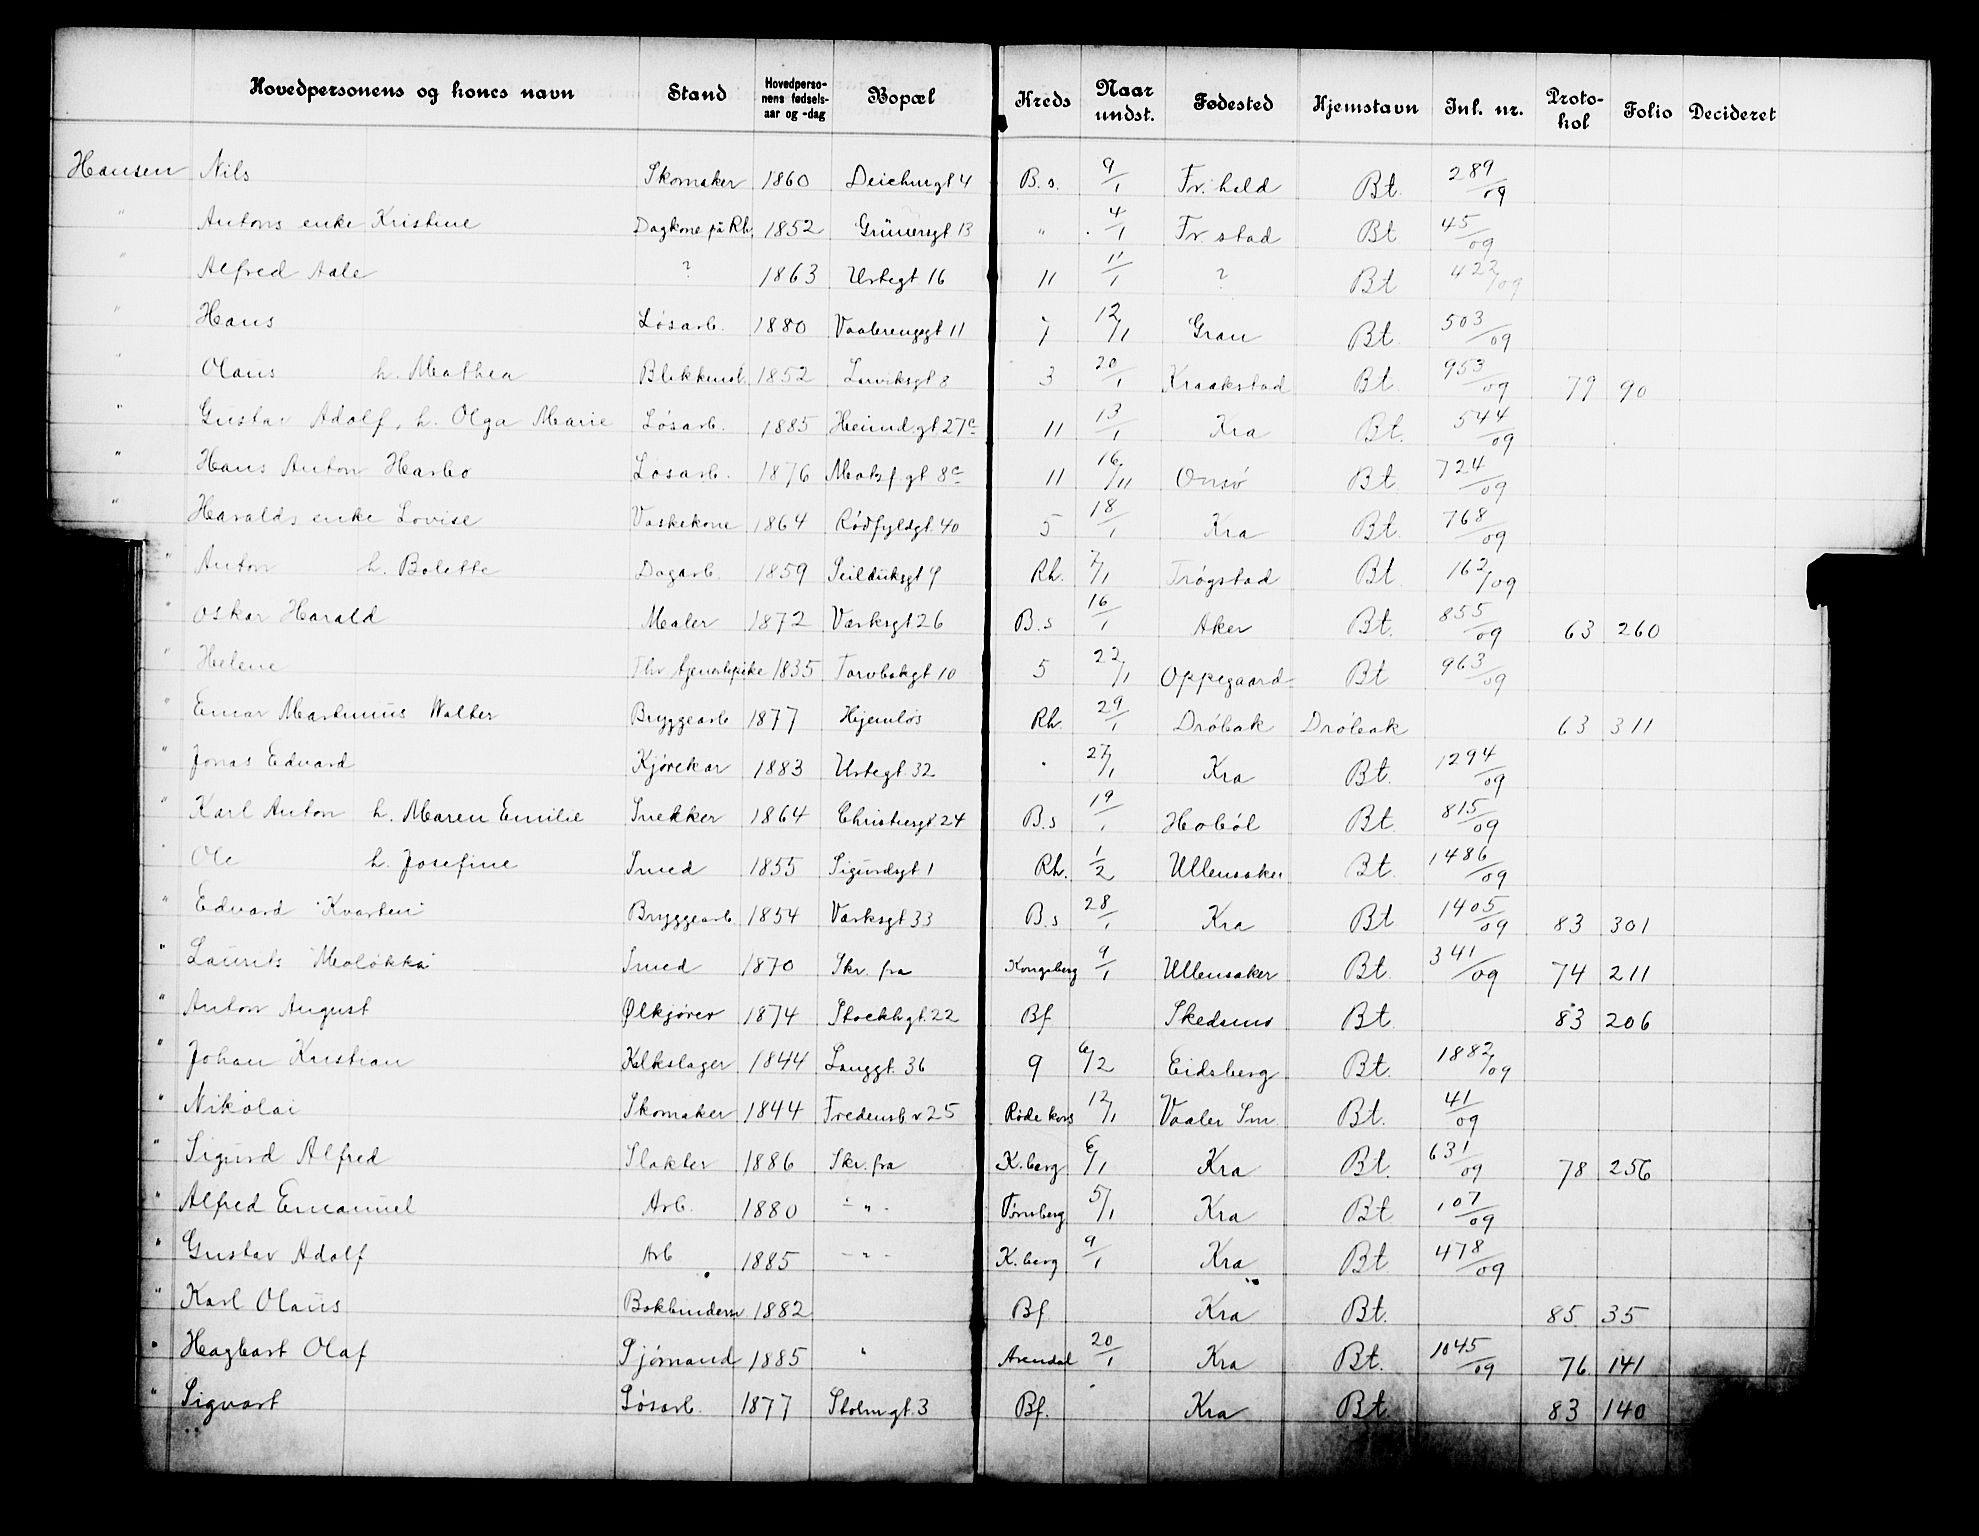 Hovedpersonens og kones navn Stand Hovedpersonens fødselsaar og -dag Bopæl Kreds Naar undst. Fødested Hjemstavn Inl. nr. Protokol Folio Decideret
Hansen Nils Skomaker 1860 Deichmgt 4 B.s. 9/1 Fr.hald Bt. 289/09
" Antons enke Kristine Dagkone på Rh. 1852 Grünersgt 13 " 4/1 Fr.stad Bt 45/09
" Alfred Aale ? 1863 Urtegt 16 11 11/1 ? Bt 422/09
" Hans Løsarb. 1880 Vaalerenggt 11 7 12/1 Gran Bt. 503/09
" Olaus h. Mathea Blikkensl. 1852 Larviksgt 8 3 20/1 Kraakstad Bt. 953/09 79 90
" Gustav Adolf, h. Olga Marie Løsarb. 1885 Heimd.gt 27c 11 13/1 Kra Bt. 544/09
" Hans Anton Harbo Løsarb. 1876 Motzf gt 8c 11 16/11 Onsø Bt. 724/09
" Haralds enke Lovise Vaskekone 1864 Rødfyldgt 40 5 18/1 Kra Bt. 768/09
" Anton h. Bolette Dagarb. 1859 Seilduksgt 9 Rh. 7/1 Trøgstad Bt. 162/09
" Oskar Harald Maler 1872 Verksgt 26 B.s 16/1 Aker Bt. 855/09 63 260
" Helene Fhv tjenestepike 1835 Torvbakgt 10 5 22/1 Oppegaard Bt 963/09
" Einar Martinius Walter Bryggearb 1877 Hjemløs Rh. 29/1 Drøbak Drøbak 63 311
" Jonas Edvard Kjørekar 1883 Urtegt. 32 " 27/1 Kra Bt. 1294/09
" Karl Anton h. Maren Emilie Snekker 1864 Christiesgt 24 B.s 19/1 Hobøl Bt. 815/09
" Ole h. Josefine Smed 1855 Sigurdsgt 1 Rh. 1/2 Ullensaker Bt. 1486/09
" Edvard "Kvarten" Bryggearb. 1854 Verksgt 33 B.s 28/1 Kra Bt 1405/09 83 301
" Laurits "Moløkka" Smed 1870 Skr. fra Kongsberg 9/1 Ullensaker Bt. 341/09 74 211
" Anton August Ølkjører 1874 Stockhgt. 22 Bf Skedsmo Bt 83 206
" Johan Kristian Kelkslager 1844 Langgt. 36 9 6/2 Eidsberg Bt. 1882/09
" Nikolai Skomaker 1844 Fredensb v 25 Røde kors 12/1 Vaaler Sm. Bt. 41/09
" Sigurd Alfred Slakter 1886 Skr. fra K.berg 6/1 Kra Bt. 631/09 78 256
" Alfred Emanuel Arb. 1880 - " - Tønsberg 5/1 Kra Bt 107/09
" Gustav Adolf Arb 1885 - " - K.berg 9/1 Kra Bt 478/09
" Karl Olaus Bokbindersv. 1882 Bf Kra Bt. 85 35
" Hagbart Olaf Sjømand 1885 " Arendal 20/1 Kra Bt. 1045/09 76 141
" Sigvart Løsarb. 1877 Stolmgt. 3 Bf. Kra Bt. 83 140